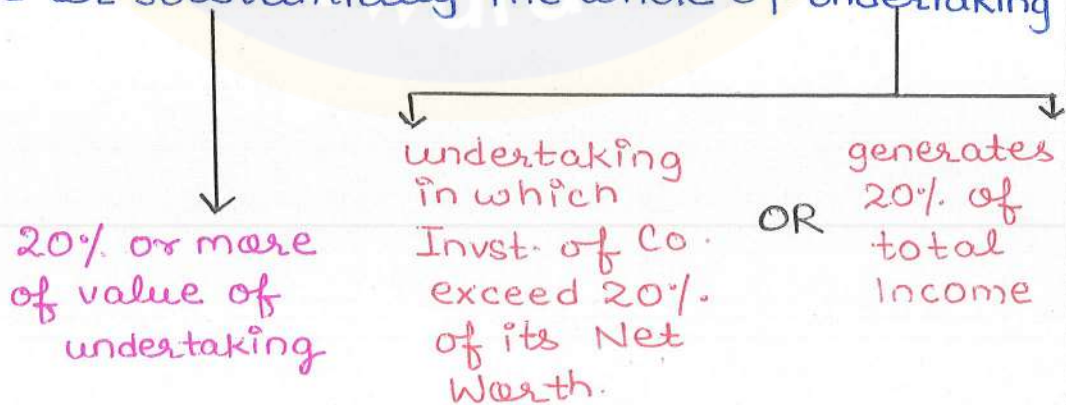 substantially the whole of undertaking
20% or more
of value of
undertaking
undertaking
in which
Invst. of Co.
exceed 20%.
of its Net
Worth.
OR
generates
20% of
total
Income